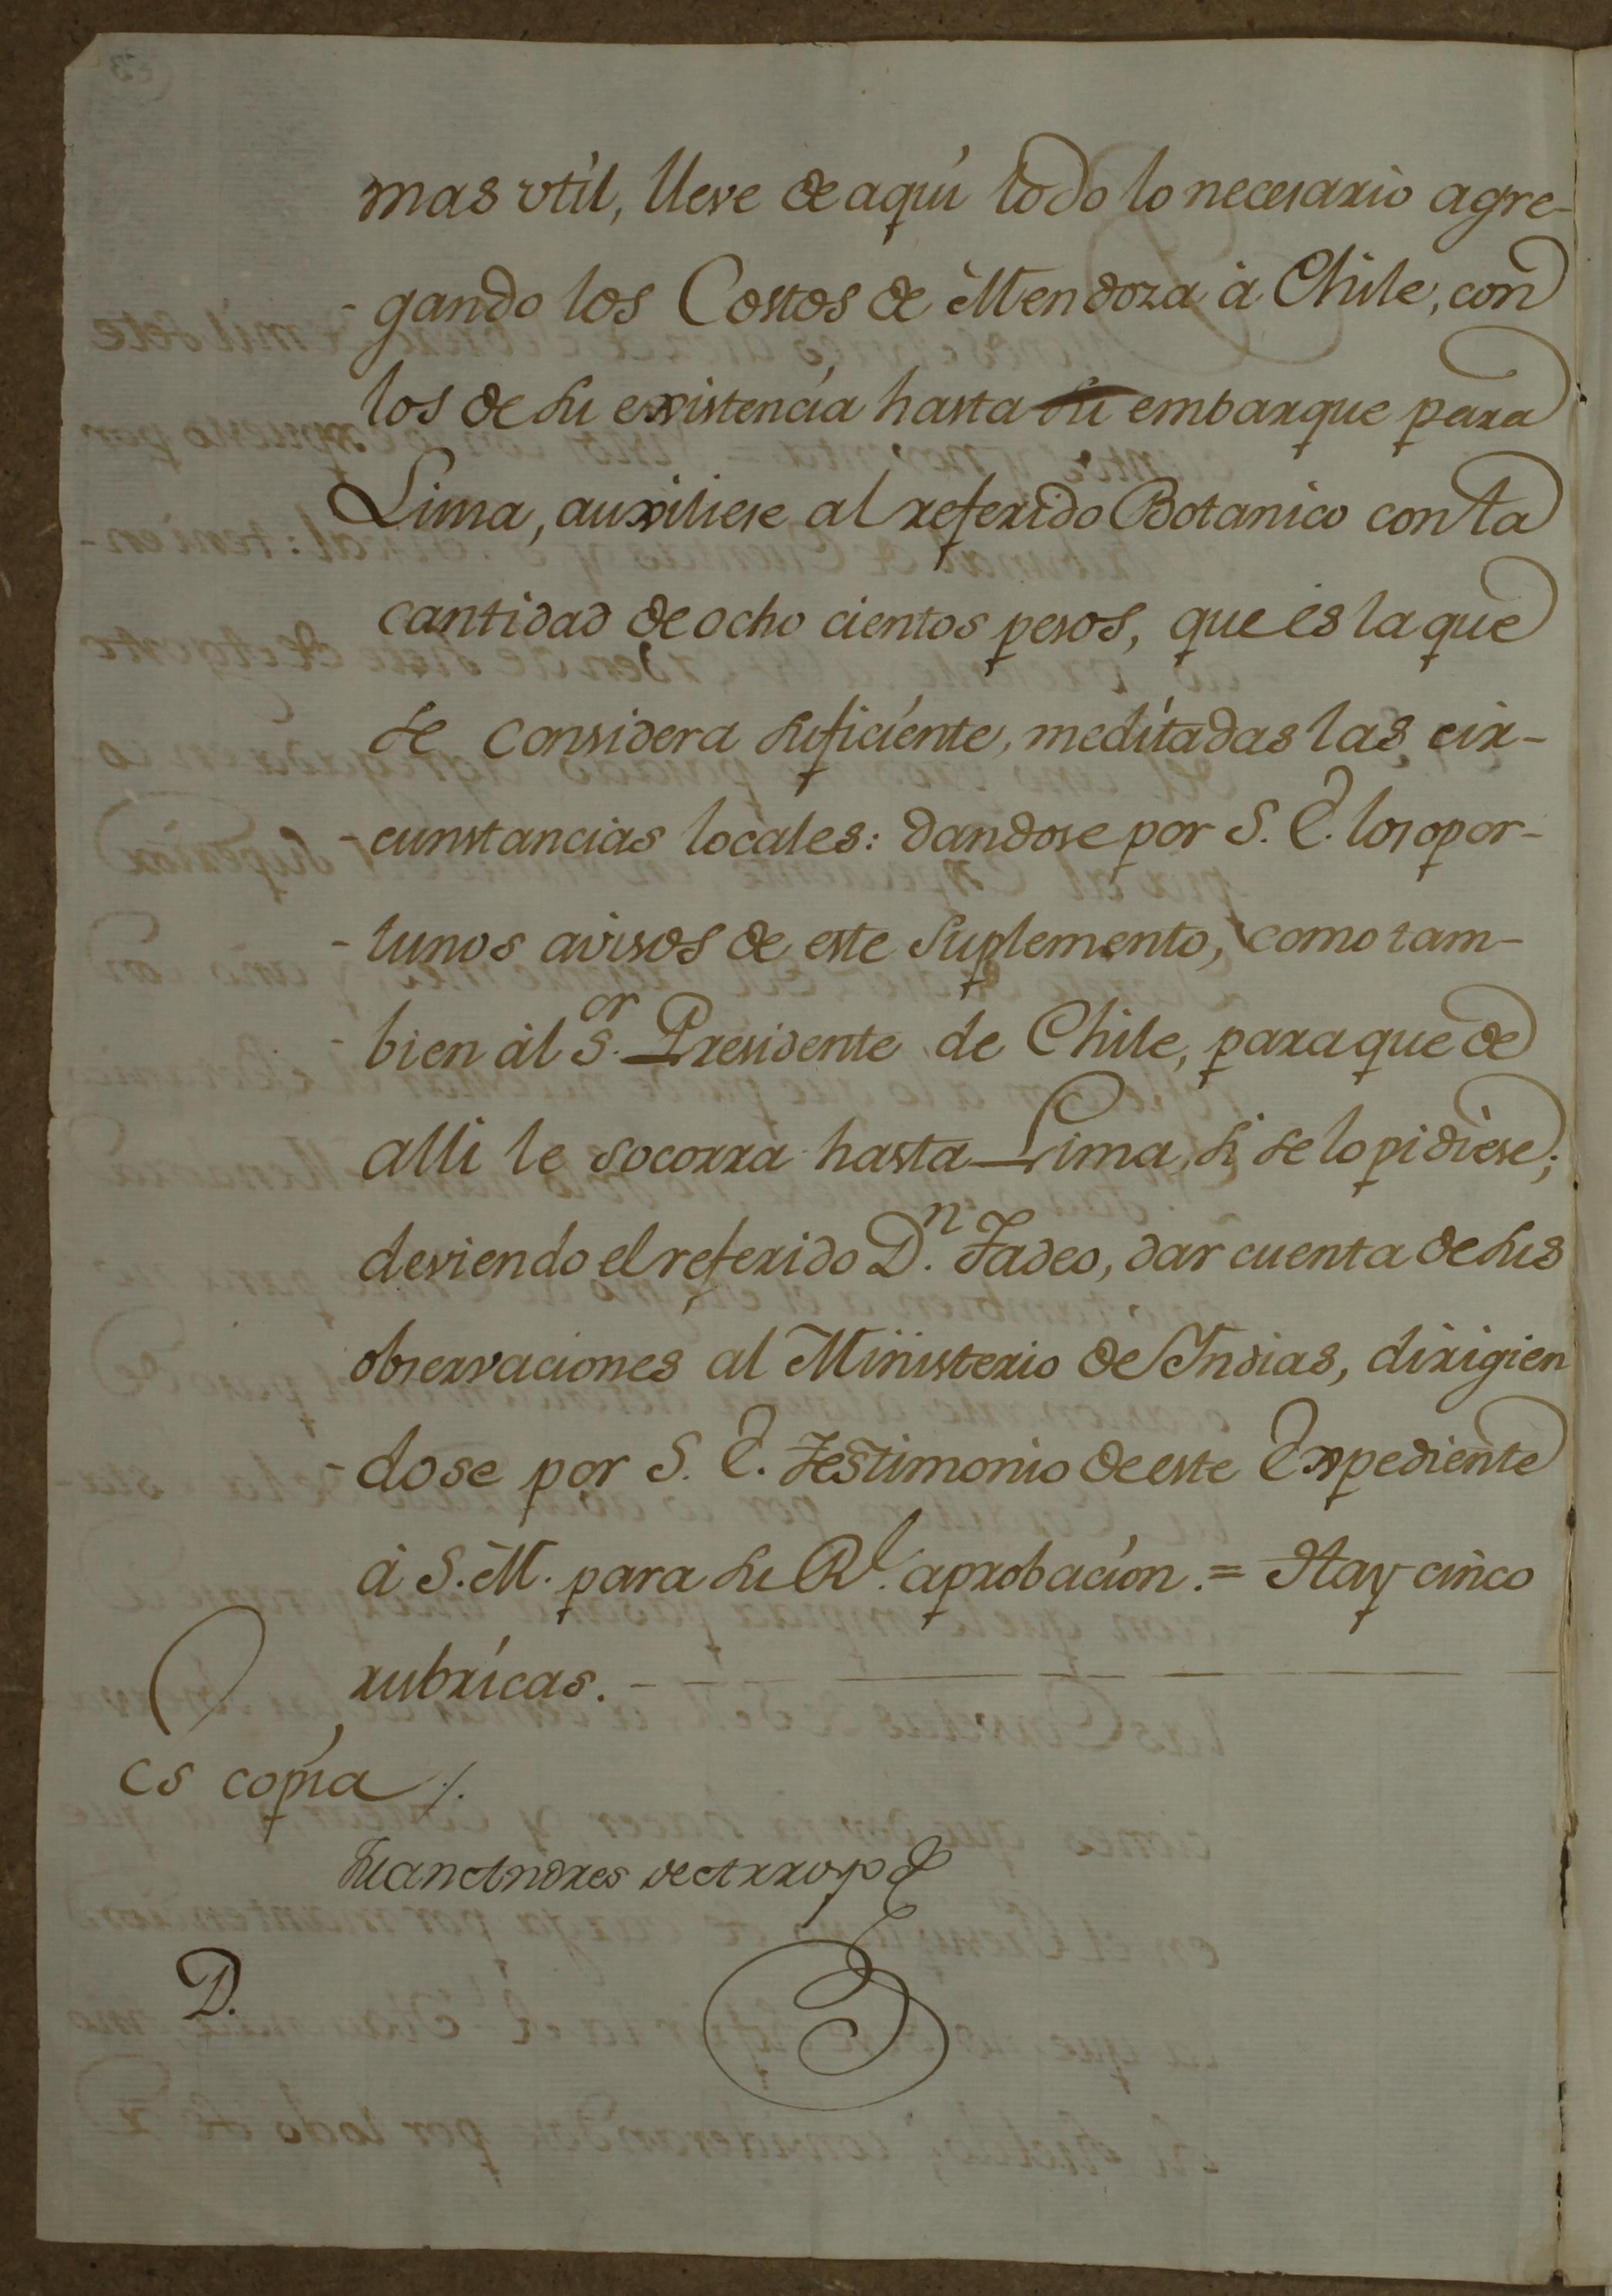 mas vtil, lleve de aqui todo lo necesario agre-
-gando los Costos de Mendoza à Chile, con
los de su existencia hasta su embarque para
Lima, auxiliese al referido Botanico con la
cantidad de ocho cientos pesos, que es la que
se considera suficiente, meditadas las cir-
-cunstancias locales: dandose por S. E. los opor-
-tunos avisos de este Suplemento, como tam-
bien àl S.or Presidente de Chile, para que de
alli le socorra hasta Lima, si se lo pidiese;
deviendo el referido D.n Tadeo, dar cuenta de sus
observaciones al Ministerio de Indias, dirigien
-dose por S. E. Testimonio de este Expediente
à S. M. para su Rl. aprobacion. = Hay cinco
rubricas. -
Es copia
Juan Andres de Arroyo
D.